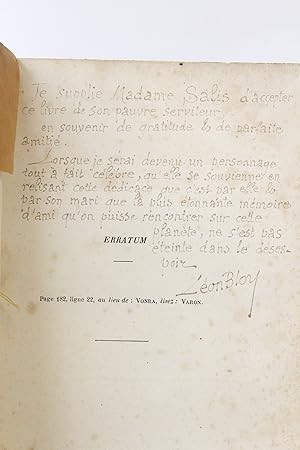 Je supplie Madame Salis d'accepter
ce livre de son pauvre serviteur,
en souvenir de gratitude & de parfaite
amitié.
Lorsque je serai devenu un personnage
tout à fait célèbre, qu'elle se souvienne en
relisant cette dédicace que c'est par elle &
par son mari que la plus étonnante mémoire
d'ami qu'on puisse rencontrer sur cette
planète, ne s'est pas
éteinte dans le deses-
poir.
Léon Bloy
ERRATUM
Page 182, ligne 22, au lieu de : VONRA, lisez : VARON.